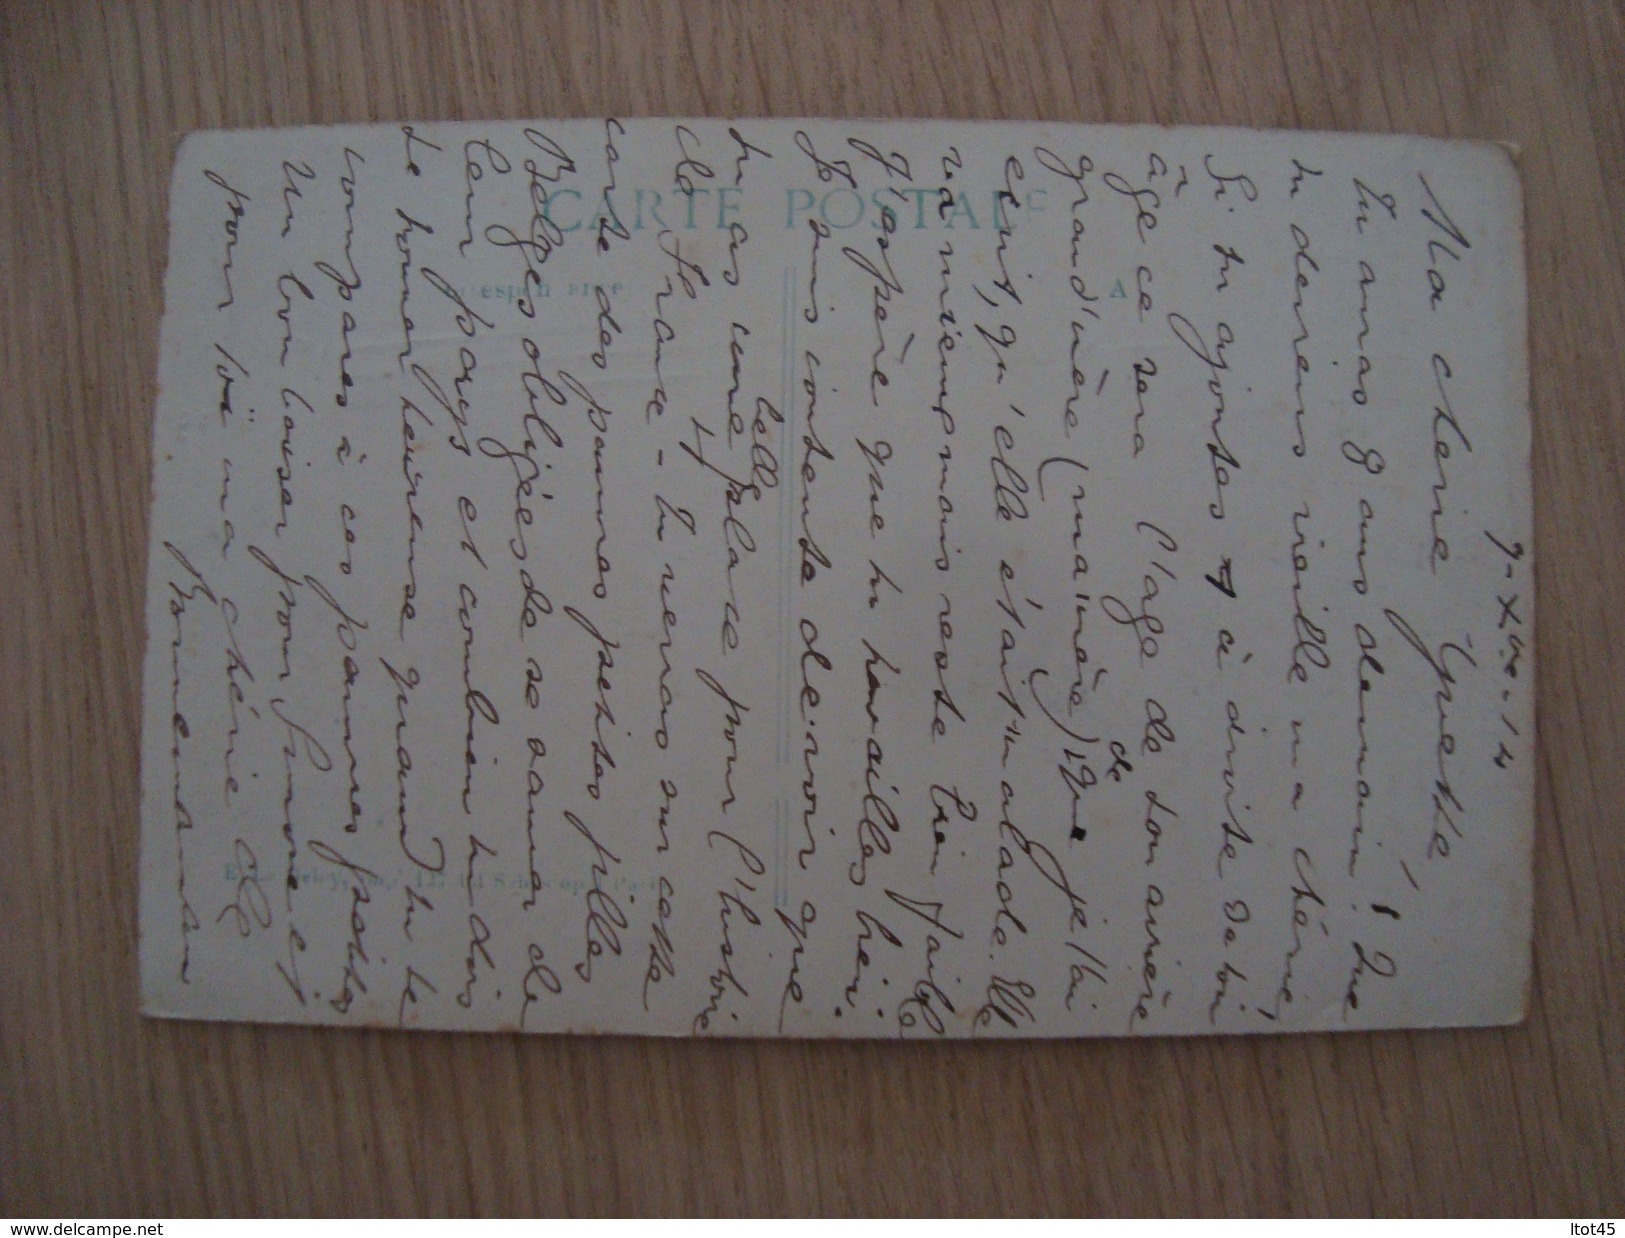 7-Xbre-14
Ma chérie
Tu auras 8 ans demain! Que
tu deviens vieille ma chérie,
Si tu ajoutes 7 à droite de ton
âge ce sera l'age de ton arrière
de
grand'mère (ma mère) que je t'ai
écrit, qu'elle était malade. Elle
va mieux mais reste bien faible
J'espère que tu travailles bien.
Je suis contente de voir que
tu as une place pour l'histoire
belle
de France - tu verras sur cette
carte des pauvres petites filles
Belges obligées de se sauver de
leur pays et combien tu dois
te trouver heureuse quand tu te
compares à ces pauvres petites
Un bon baiser pour Simone et
pour toi ma chérie de
Bonnemaman
CARTE POSTALE
Correspondance
A
www.delcampe.net
ltot45